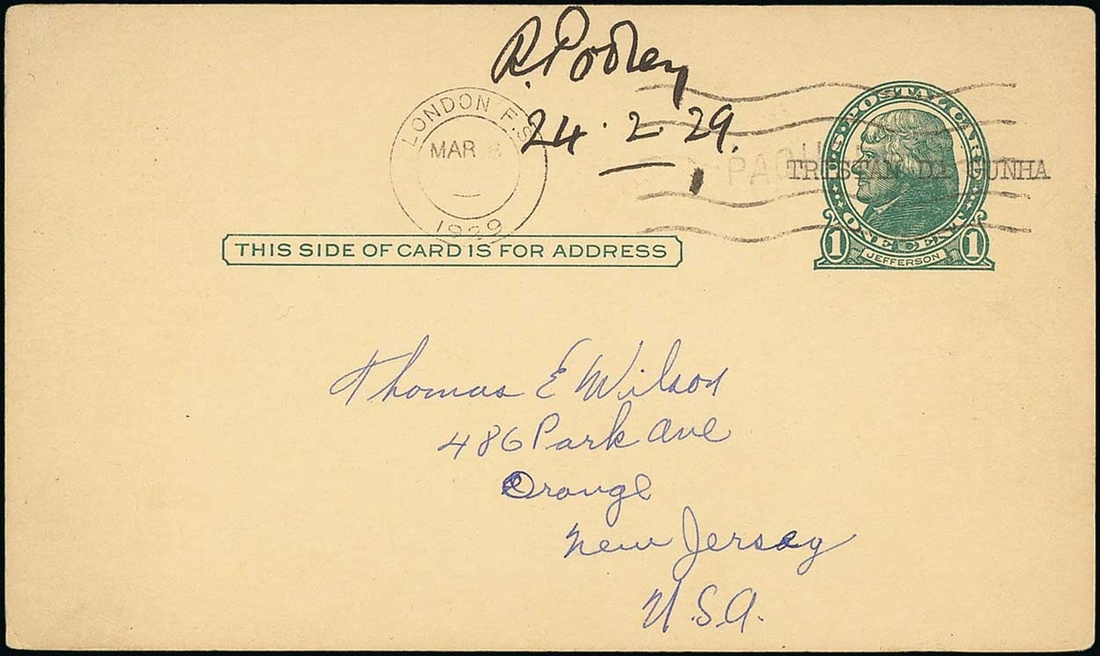 R. Pooley
24.2.29.
LONDON F.S
MAR
1929
PAQU
TRISTAN DA CUNHA
U·S·POSTAL CARD
ONE CENT
1 JEFFERSON 1
THIS SIDE OF CARD IS FOR ADDRESS
Thomas E Wilson
486 Park Ave
Orange
New Jersey
U.S.A.